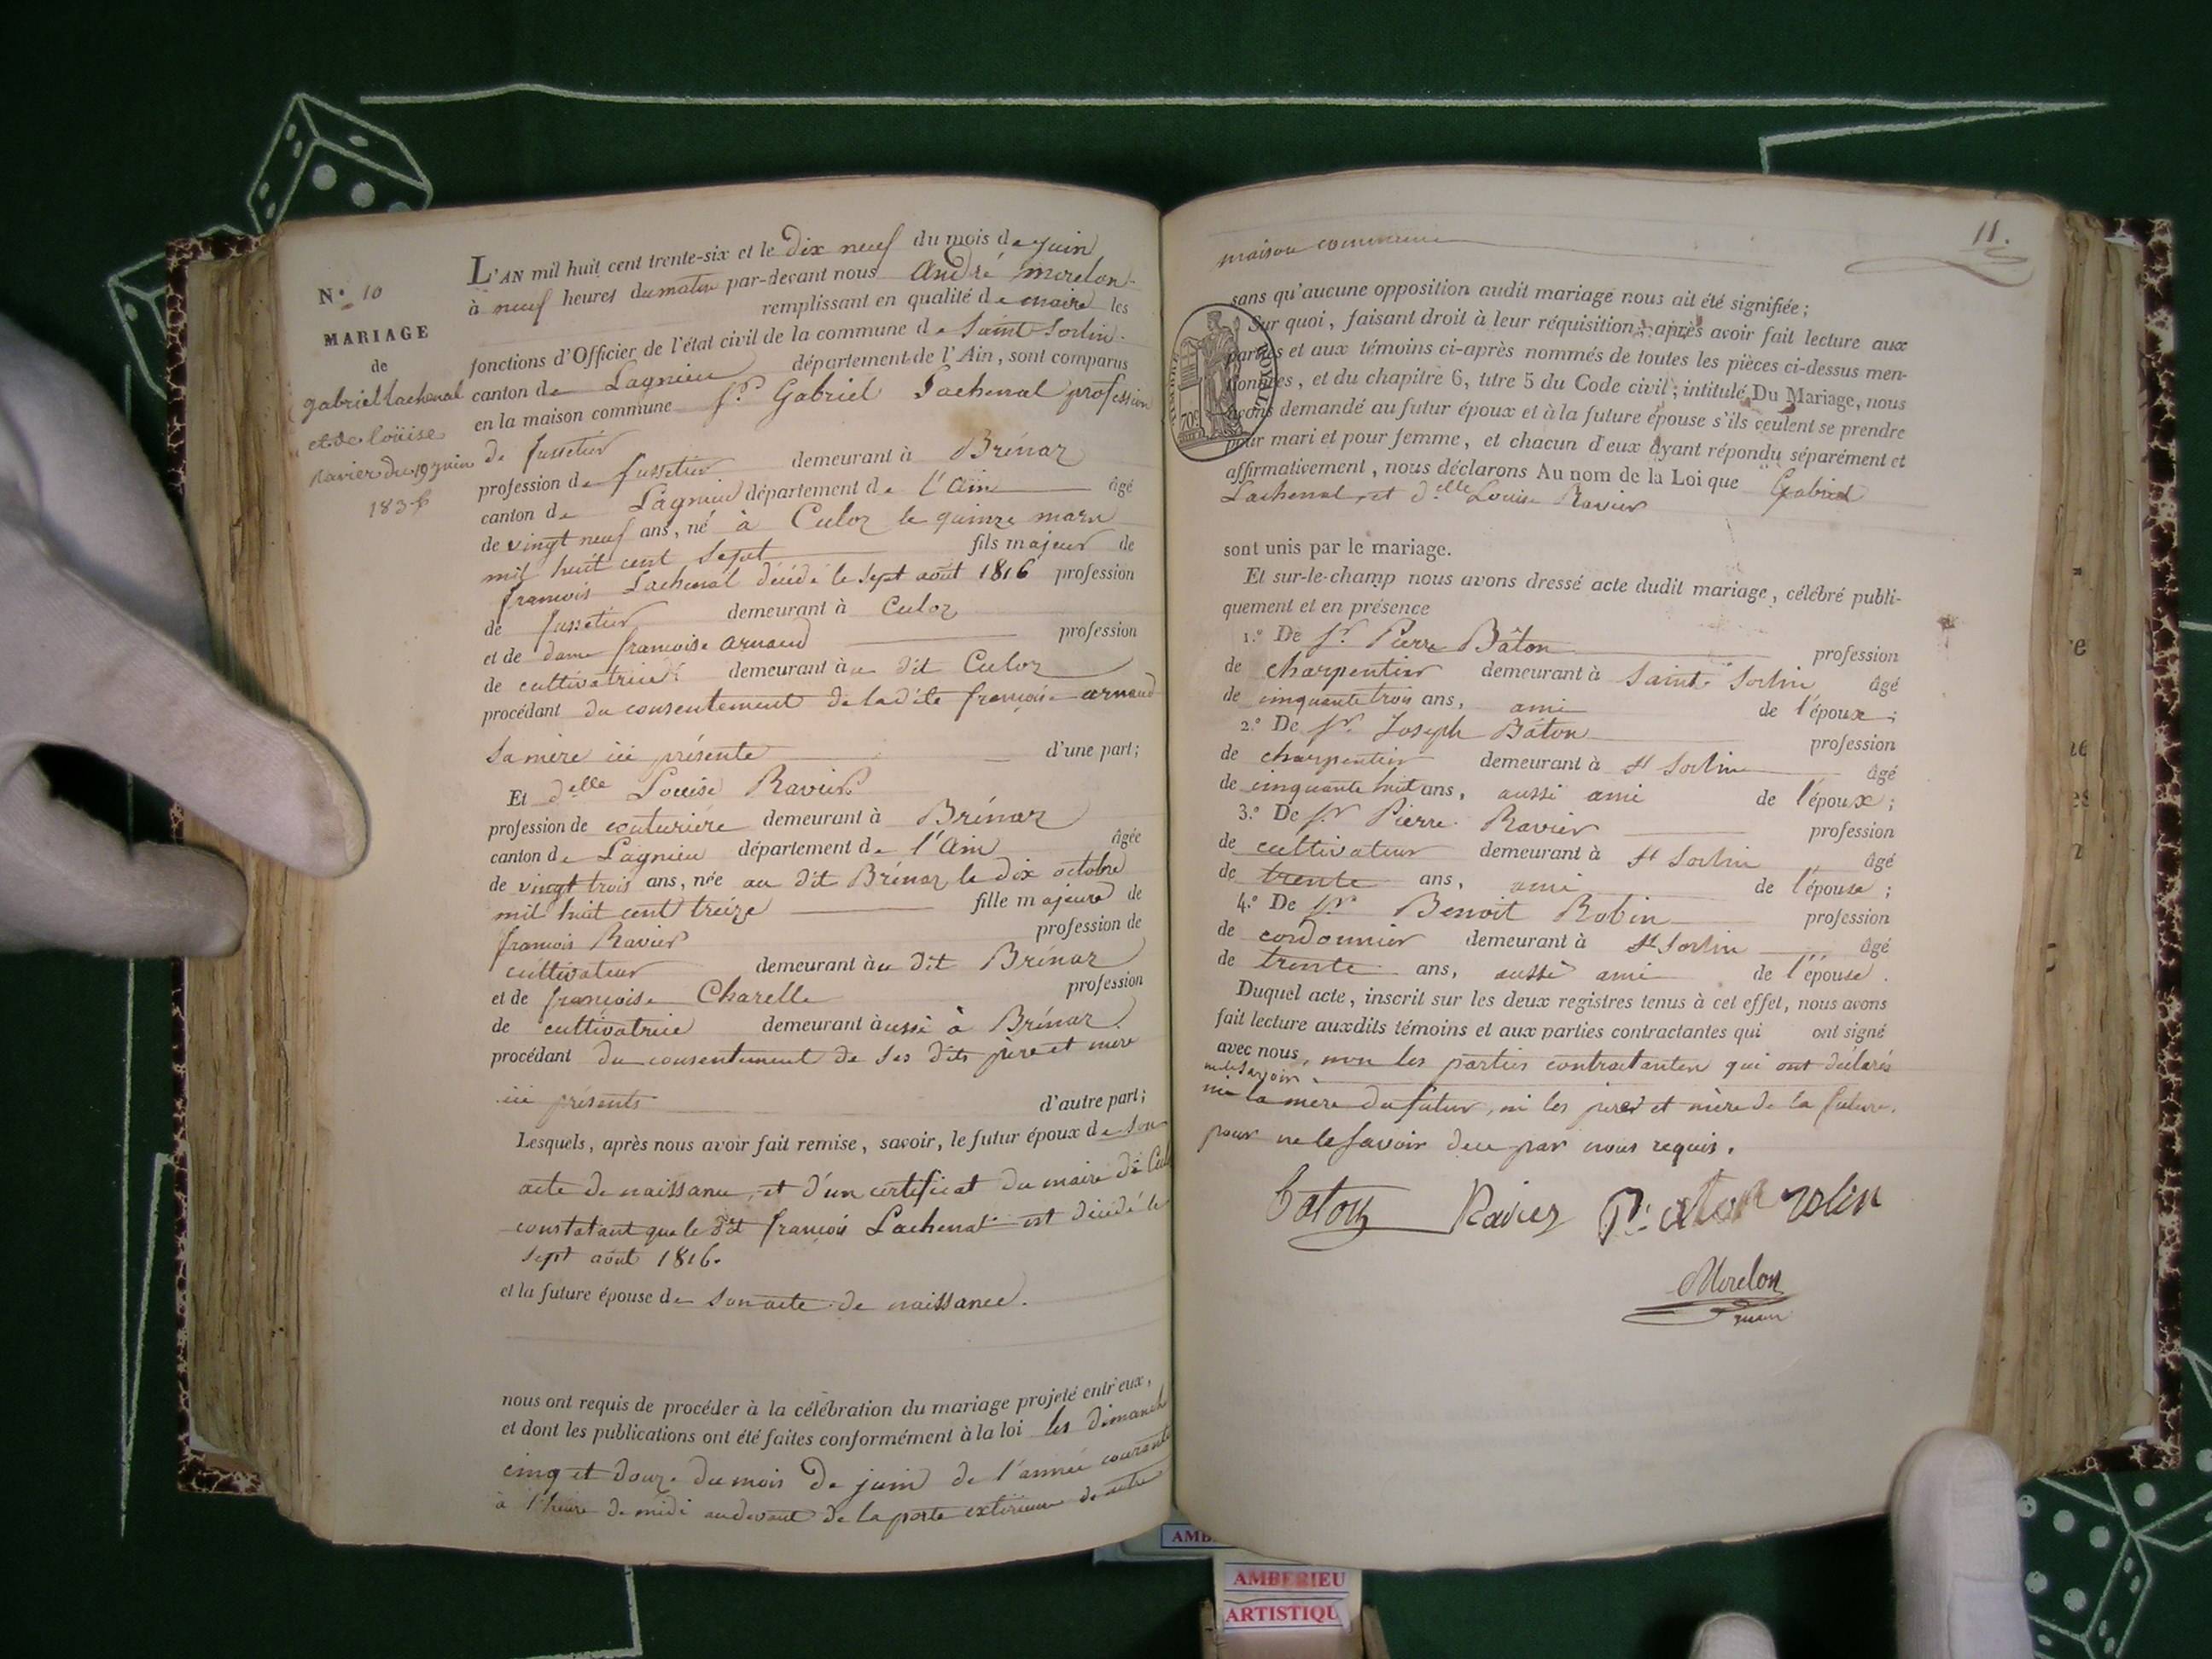 N.º 10
MARIAGE
de
gabriel Lachenal
et de loüise
Ravier du 19 juin
1836
L'AN mil huit cent trente-six et le dix neuf du mois de juin
à neuf heures du matin par-devant nous André morelon
remplissant en qualité de maire les
fonctions d'Officier de l'état civil de la commune de Saint Sorlin
canton de Lagnieu département de l'Ain, sont comparus
en la maison commune Sr. Gabriel Lachenal profession
de fustier
profession de fustier demeurant à Brénaz
canton de Lagnieu département de l'Ain âgé
de vingt neuf ans, né à Culoz le quinze mars
mil huit cent sept fils majeur de
francois Lachenal décédé le sept août 1816 profession
de fustier demeurant à Culoz
et de dame francoise arnaud profession
de cultivatrice demeurant au dit Culoz
procédant du consentement de ladite françoise arnaud
sa mère ici présente d'une part;
Et delle Louise Ravier
profession de couturière demeurant à Brénaz
canton de Lagnieu département de l'Ain âgée
de vingt trois ans, née au dit Brénaz le dix octobre
mil huit cent treize fille majeure de
francois Ravier profession de
cultivateur demeurant au dit Brénaz
et de francoise Charelle profession
de cultivatrice demeurant aussi à Brénaz
procédant du consentement de ses dits père et mere
ici présents d'autre part;
Lesquels, après nous avoir fait remise, savoir, le futur époux de son
acte de naissance, et d'un certificat du maire de
constatant que le dit françois Lachenal est décédé le
sept août 1816.
et la future épouse de son acte de naissance.
nous ont requis de procéder à la célébration du mariage projeté entr'eux,
et dont les publications ont été faites conformément à la loi les dimanche
cinq et douze du mois de juin de l'année courante
à l'heure de midi au devant de la porte extérieure de notre
11.
maison commune
sans qu'aucune opposition audit mariage nous ait été signifiée;
Sur quoi, faisant droit à leur réquisition, après avoir fait lecture aux
parties et aux témoins ci-après nommés de toutes les pièces ci-dessus men-
tionnées, et du chapitre 6, titre 5 du Code civil; intitulé Du Mariage, nous
avons demandé au futur époux et à la future épouse s'ils veulent se prendre
pour mari et pour femme, et chacun d'eux ayant répondu séparément et
affirmativement, nous déclarons Au nom de la Loi que Gabriel
Lachenal, et delle Louise Ravier
sont unis par le mariage.
Et sur-le-champ nous avons dressé acte dudit mariage, célébré publi-
quement et en présence
1.º De Sr. Pierre Bâton profession
de charpentier demeurant à Saint Sorlin âgé
de cinquante trois ans, ami de l'époux;
2.º De Sr. Joseph Bâton profession
de charpentier demeurant à St Sorlin âgé
de cinquante huit ans, aussi ami de l'époux;
3.º De Sr Pierre Ravier profession
de cultivateur demeurant à St Sorlin âgé
de trente ans, ami de l'épouse;
4.º De Sr Benoit Robin profession
de cordonnier demeurant à St Sorlin âgé
de trente ans, aussi ami de l'épouse.
Duquel acte, inscrit sur les deux registres tenus à cet effet, nous avons
fait lecture auxdits témoins et aux parties contractantes qui ont signé
avec nous, non les parties contractantes qui ont déclarés
ne le savoir
ni la mère du futur, ni les père et mère de la future,
pour ne le savoir de ce par nous requis.
Baton Ravier
Morelon
maire
TIMBRE ROYAL
70c
AMBERIEU
ARTISTIQU